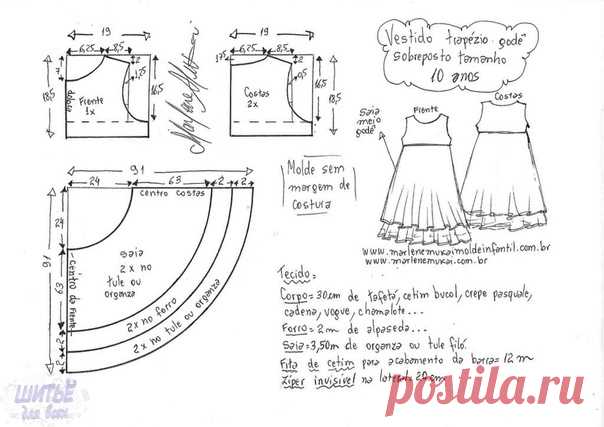 19
6,25 8,5
2
1,75
7
18,5
16,5
dobra
Frente
1x
19
6,25 8,5
1,75
2
0,5
Costas
2x
16,5
18,5
Vestido trapézio godê
sobreposto tamanho
10 anos
Frente
Costas
Saia
meio
godê
Molde sem
margem de
costura
www.marlenemukaimoldeinfantil.com.br
www.marlenemukai.com.br
91
24 63 2 2
centro costas
24
91
63
2
2
Centro da frente
Saia
2x no
tule ou
organza
2x no forro
2x no tule ou organza
Tecido=
Corpo=30cm de tafetá, cetim bucol, crepe pasquale,
cadena, vogue, chamalote...
Forro=2m de alpaseda...
Saia=3,50m de organza ou tule filó.
Fita de cetim para acabamento da barra=12m
Ziper invisível na lateral=
ШИТЬЁ
для всех
postila.ru